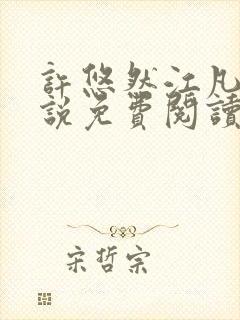 許悠然江凡
說免費閱讀
宋哲宗